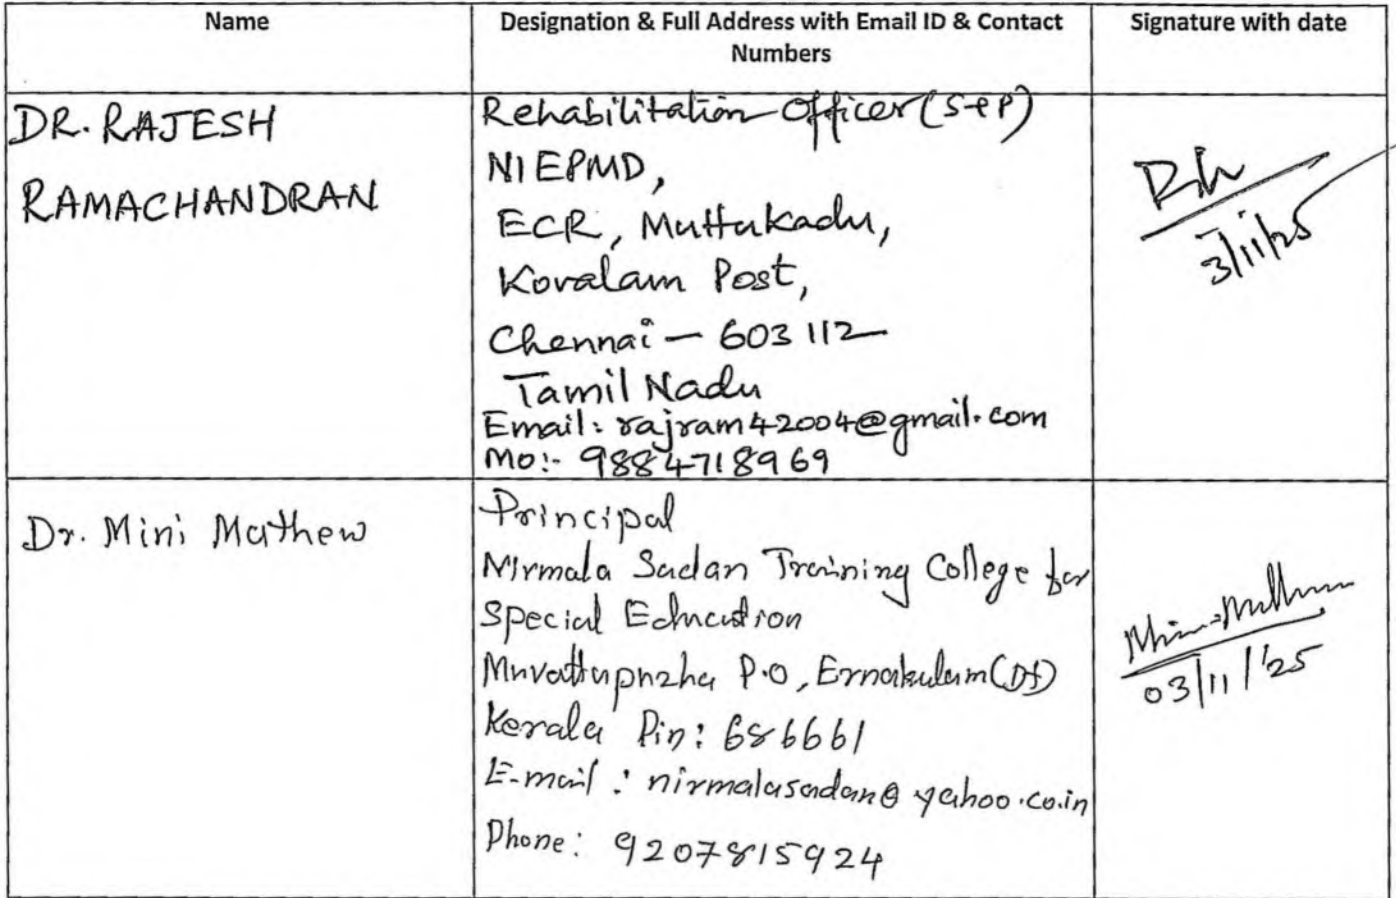 Name
Designation & Full Address with Email ID & Contact
Numbers
Signature with date
DR. RAJESH
RAMACHANDRAN
Rehabilitation Officer (S&P)
NIEPMD,
ECR, Muttukadu,
Kovalam Post,
Chennai - 603 112
Tamil Nadu
Email: rajram42004@gmail.com
Mo:- 9884718969
3/11/25
Dr. Mini Mathew
Principal
Nirmala Sadan Training College for
Special Education
Muvattupuzha P.O, Ernakulam (Dt)
Kerala Pin: 686661
E-mail : nirmalasadan@yahoo.co.in
Phone: 9207815924
03/11/'25